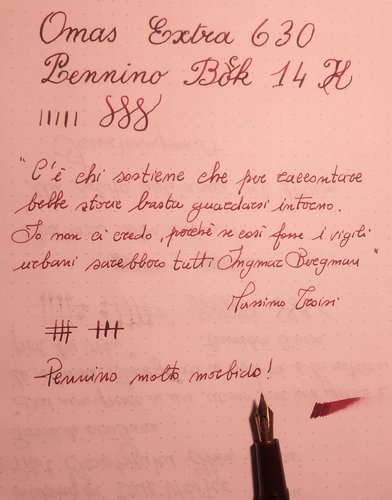 Omas Extra 630
Pennino Bŏk 14 K
"C'è chi sostiene che per raccontare
belle storie basta guardarsi intorno.
Io non ci credo, perchè se così fosse i vigili
urbani sarebbero tutti Ingmar Bergman"
Massimo Troisi
Pennino molto morbido!